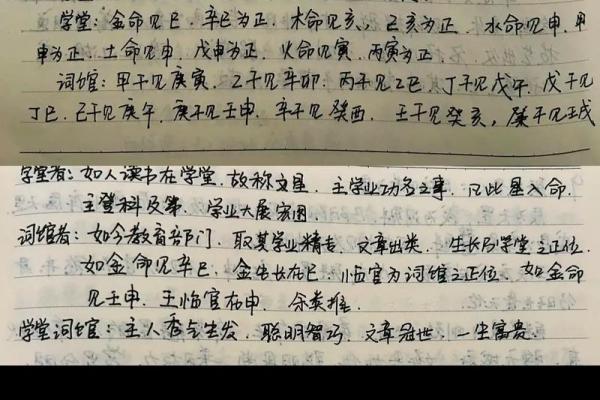 学堂：金命见巳，辛巳为正，木命见亥，己亥为正，水命见申，甲
申为正，土命见申，戊申为正，火命见寅，丙寅为正
词馆：甲干见庚寅，乙干见辛卯，丙干见乙巳，丁干见戊午，戊干见
丁巳，己干见庚午，庚干见壬申，辛干见癸酉，壬干见癸亥，癸干见壬戌
学堂者：如人读书在学堂，故称文星，主学业功名之事，只此星入命，
主登科及第，学业大展宏图
词馆者：如今教育部门，取其学业精专，文章出类，生长乃学堂之正位，
如金命见辛巳，金生长在巳，临官为词馆之正位，如金命
见壬申，壬临官在申，余类推，
学堂词馆：主人秀气生发，聪明智巧，文章冠世，一生富贵